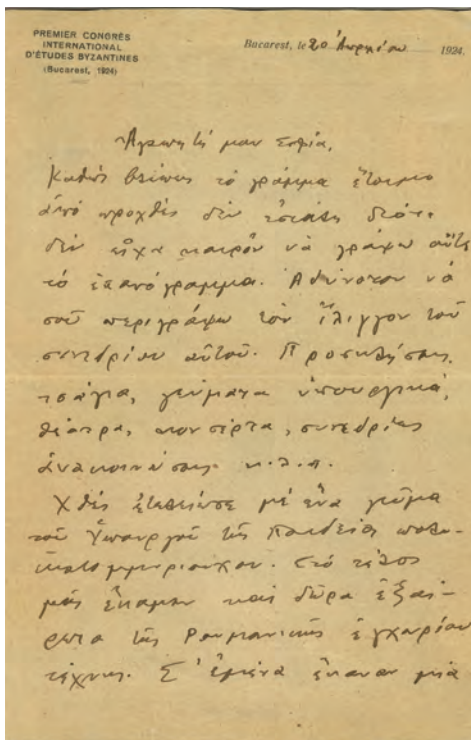 PREMIER CONGRÈS
INTERNATIONAL
D'ÉTUDES BYZANTINES
(Bucarest, 1924)
Bucarest, le 20 Ἀπριλίου 1924.
Ἀγαπητή μου Σοφία,
Καθὼς βλέπεις τὸ γράμμα ἕτοιμο
ἀπὸ προχθὲς δὲν ἐστάλη διότι
δὲν εἶχα καιρὸν νὰ γράψω οὔτε
τὸ ἐπανόγραμμα. Ἀδύνατον νὰ
σοῦ περιγράψω τὸν ἴλιγγον τοῦ
συνεδρίου αὐτοῦ. Προσκλήσεις,
τσάγια, γεύματα ὑπουργικά,
θέατρα, κονσέρτα, συνεδρίες
ἀνακοινώσεις κ.τ.λ.
Χθὲς ἐτελείωσε μὲ ἕνα γεῦμα
τοῦ Ὑπουργοῦ τῆς Παιδείας
Στὸ τέλος
μᾶς ἔκαμαν καὶ δῶρα ἐξαί-
ρετα τῆς Ρουμανικῆς ἐγχωρίου
τέχνης. Σ' ἐμένα ἔκαναν μιὰ